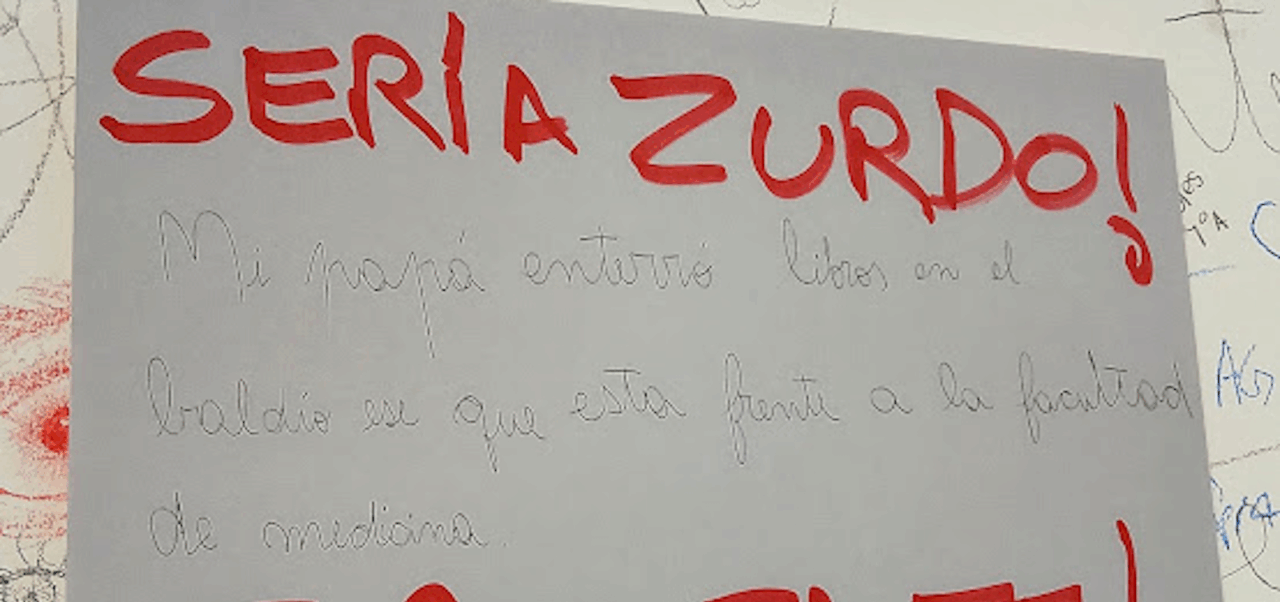 SERÍA ZURDO!
Mi papá enterró libros en el
baldío ese que esta frente a la facultad
de medicina.